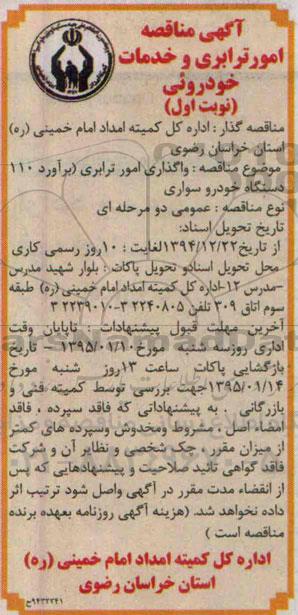 آگهی مناقصه
امورترابری و خدمات
خودروئی
(نوبت اول)
مناقصه گذار : اداره کل کمیته امداد امام خمینی (ره)
استان خراسان رضوی
موضوع مناقصه : واگذاری امور ترابری (برآورد ۱۱۰
دستگاه خودرو سواری
نوع مناقصه : عمومی دو مرحله ای
تاریخ تحویل اسناد:
از تاریخ۱۳۹۴/۱۲/۲۲لغایت : ۱۰روز رسمی کاری
محل تحویل اسنادو تحویل پاکات : بلوار شهید مدرس
-مدرس ۱۲-اداره کل کمیته امداد امام خمینی (ره) طبقه
سوم اتاق ۳۰۹ تلفن ۳۲۲۴۰۸۰۵-۳۲۲۳۹۰۱۰
آخرین مهلت قبول پیشنهادات : تاپایان وقت
اداری روزسه شنبه مورخ۱۳۹۵/۰۱/۱۰- تاریخ
بازگشایی پاکات، ساعت ۱۳روز شنبه مورخ
۱۳۹۵/۰۱/۱۴جهت بررسی توسط کمیته فنی و
بازرگانی . به پیشنهاداتی که فاقد سپرده ، فاقد
امضاء اصل ، مشروط ومخدوش وسپرده های کمتر
از میزان مقرر ، چک شخصی و نظایر آن و شرکت
فاقد گواهی تائید صلاحیت و پیشنهادهایی که پس
از انقضاء مدت مقرر در آگهی واصل شود ترتیب اثر
داده نخواهد شد. (هزینه آگهی روزنامه بعهده برنده
مناقصه است )
اداره کل کمیته امداد امام خمینی (ره)
استان خراسان رضوی
۹۴۳۲۳۴۱ح